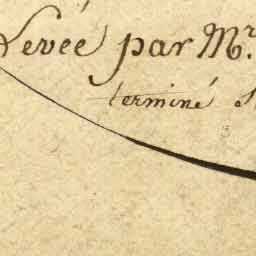 Levée par Mr.
terminé